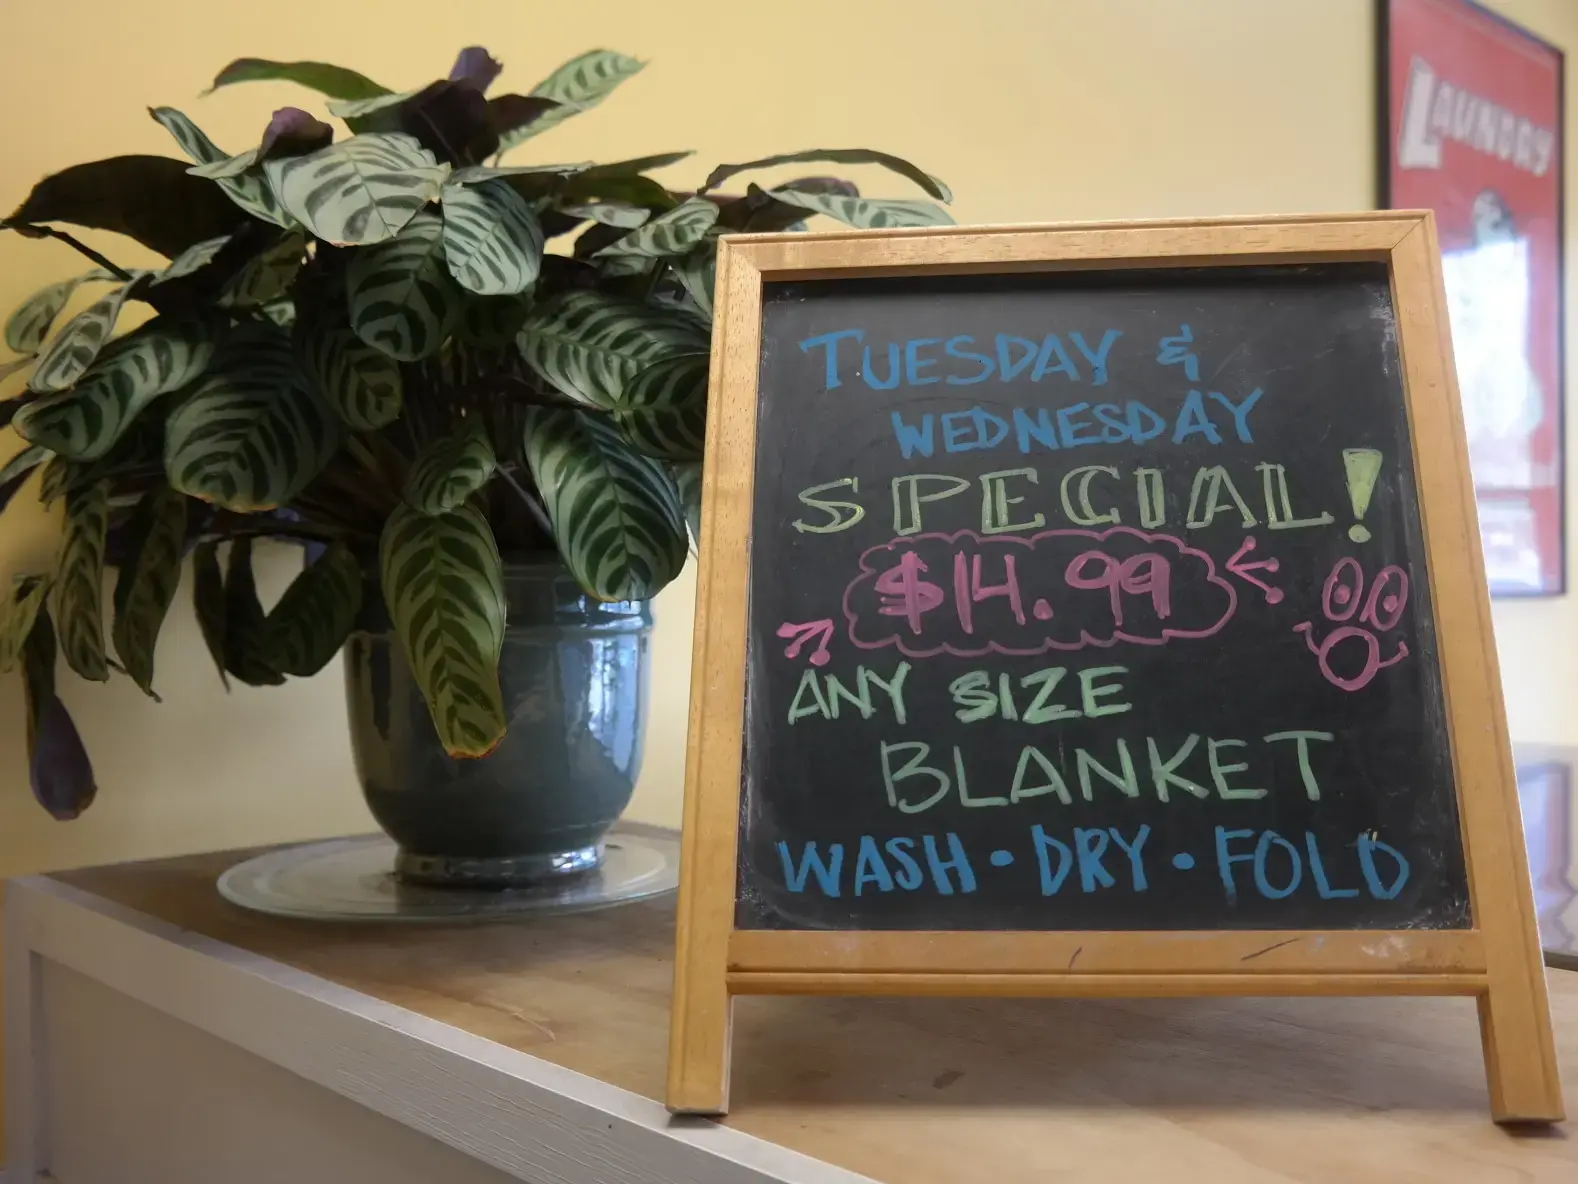 LAUNDRY
TUESDAY &
WEDNESDAY
SPECIAL!
$14.99
ANY SIZE
BLANKET
WASH • DRY • FOLD